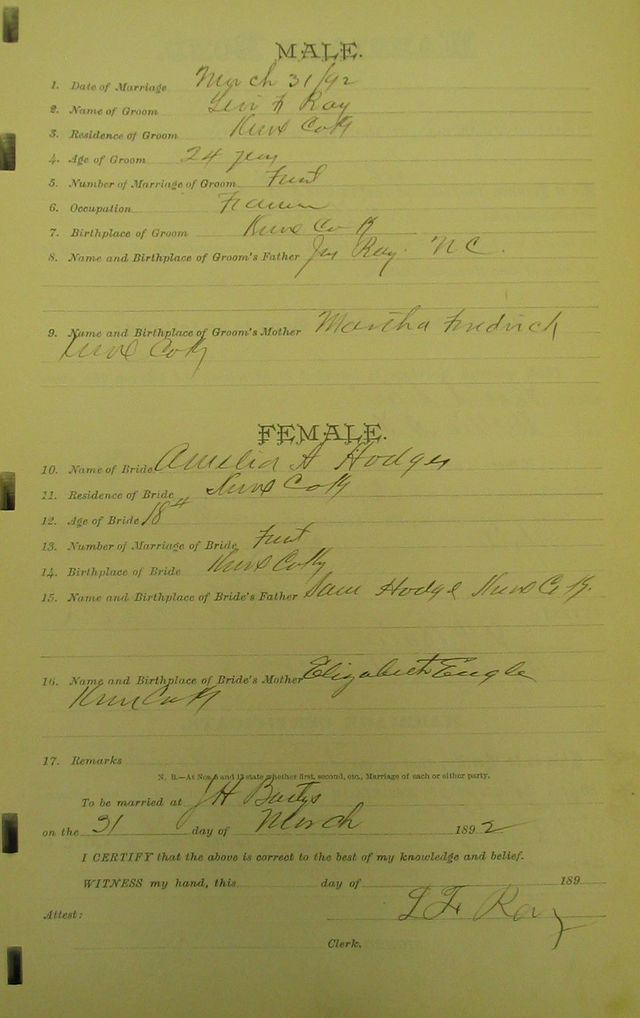 MALE.
1. Date of Marriage March 31/92
2. Name of Groom Levi F Ray
3. Residence of Groom Knox Co Ky
4. Age of Groom 24 years
5. Number of Marriage of Groom First
6. Occupation Farmer
7. Birthplace of Groom Knox Co K
8. Name and Birthplace of Groom's Father Jas Ray. N C.
9. Name and Birthplace of Groom's Mother Martha Fredrick
Knox Co Ky
FEMALE.
10. Name of Bride Amelia A Hodges
11. Residence of Bride Knox Co Ky
12. Age of Bride 18
13. Number of Marriage of Bride First
14. Birthplace of Bride Knox Co Ky
15. Name and Birthplace of Bride's Father Sam Hodge Knox Co Ky.
16. Name and Birthplace of Bride's Mother Elizabeth Engle
Knox Co Ky
17. Remarks
N. B.—At Nos. 5 and 13 state whether first, second, etc., Marriage of each or either party.
To be married at J H
on the 31 day of March 1892
I CERTIFY that the above is correct to the best of my knowledge and belief.
WITNESS my hand, this day of 189
L F Ray
Attest:
Clerk.